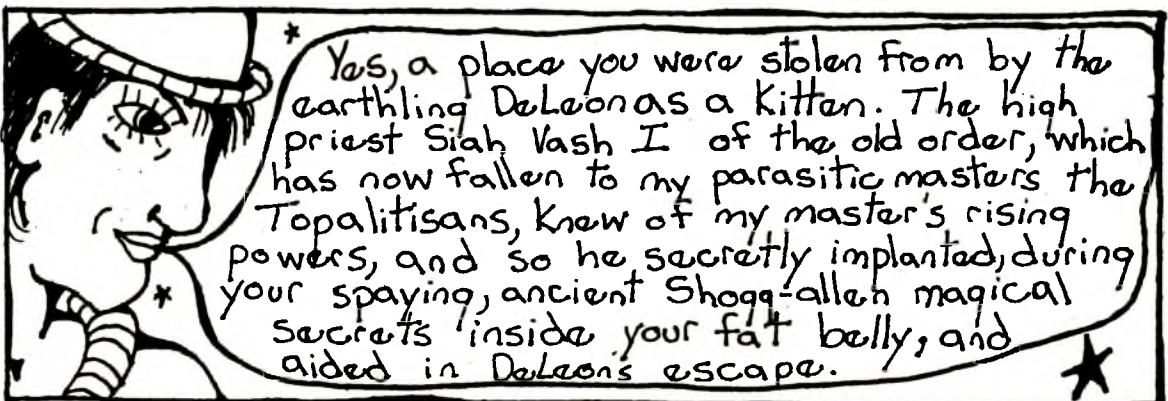 Yes, a place you were stolen from by the
earthling DeLeon as a Kitten. The high
priest Siah Vash I of the old order, which
has now fallen to my parasitic masters the
Topalitisans, Knew of my master's rising
powers, and so he secretly implanted, during
your spaying, ancient Shogg-alleh magical
secrets inside your fat belly, and
aided in DeLeon's escape.